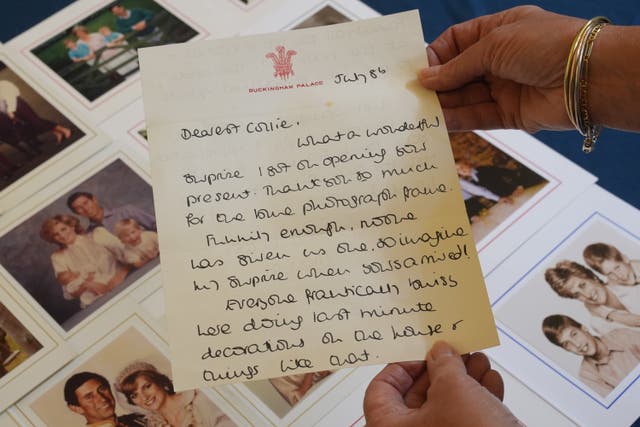 BUCKINGHAM PALACE
July 86
Dearest Collie,
What a wonderful
surprise I got on opening your
present. Thank you so much
for the lovely photograph frame.
Funnily enough, no one
has given us one, so imagine
my surprise when yours arrived!
Everyone frantically busy
here doing last minute
decorations on the house &
things like that.